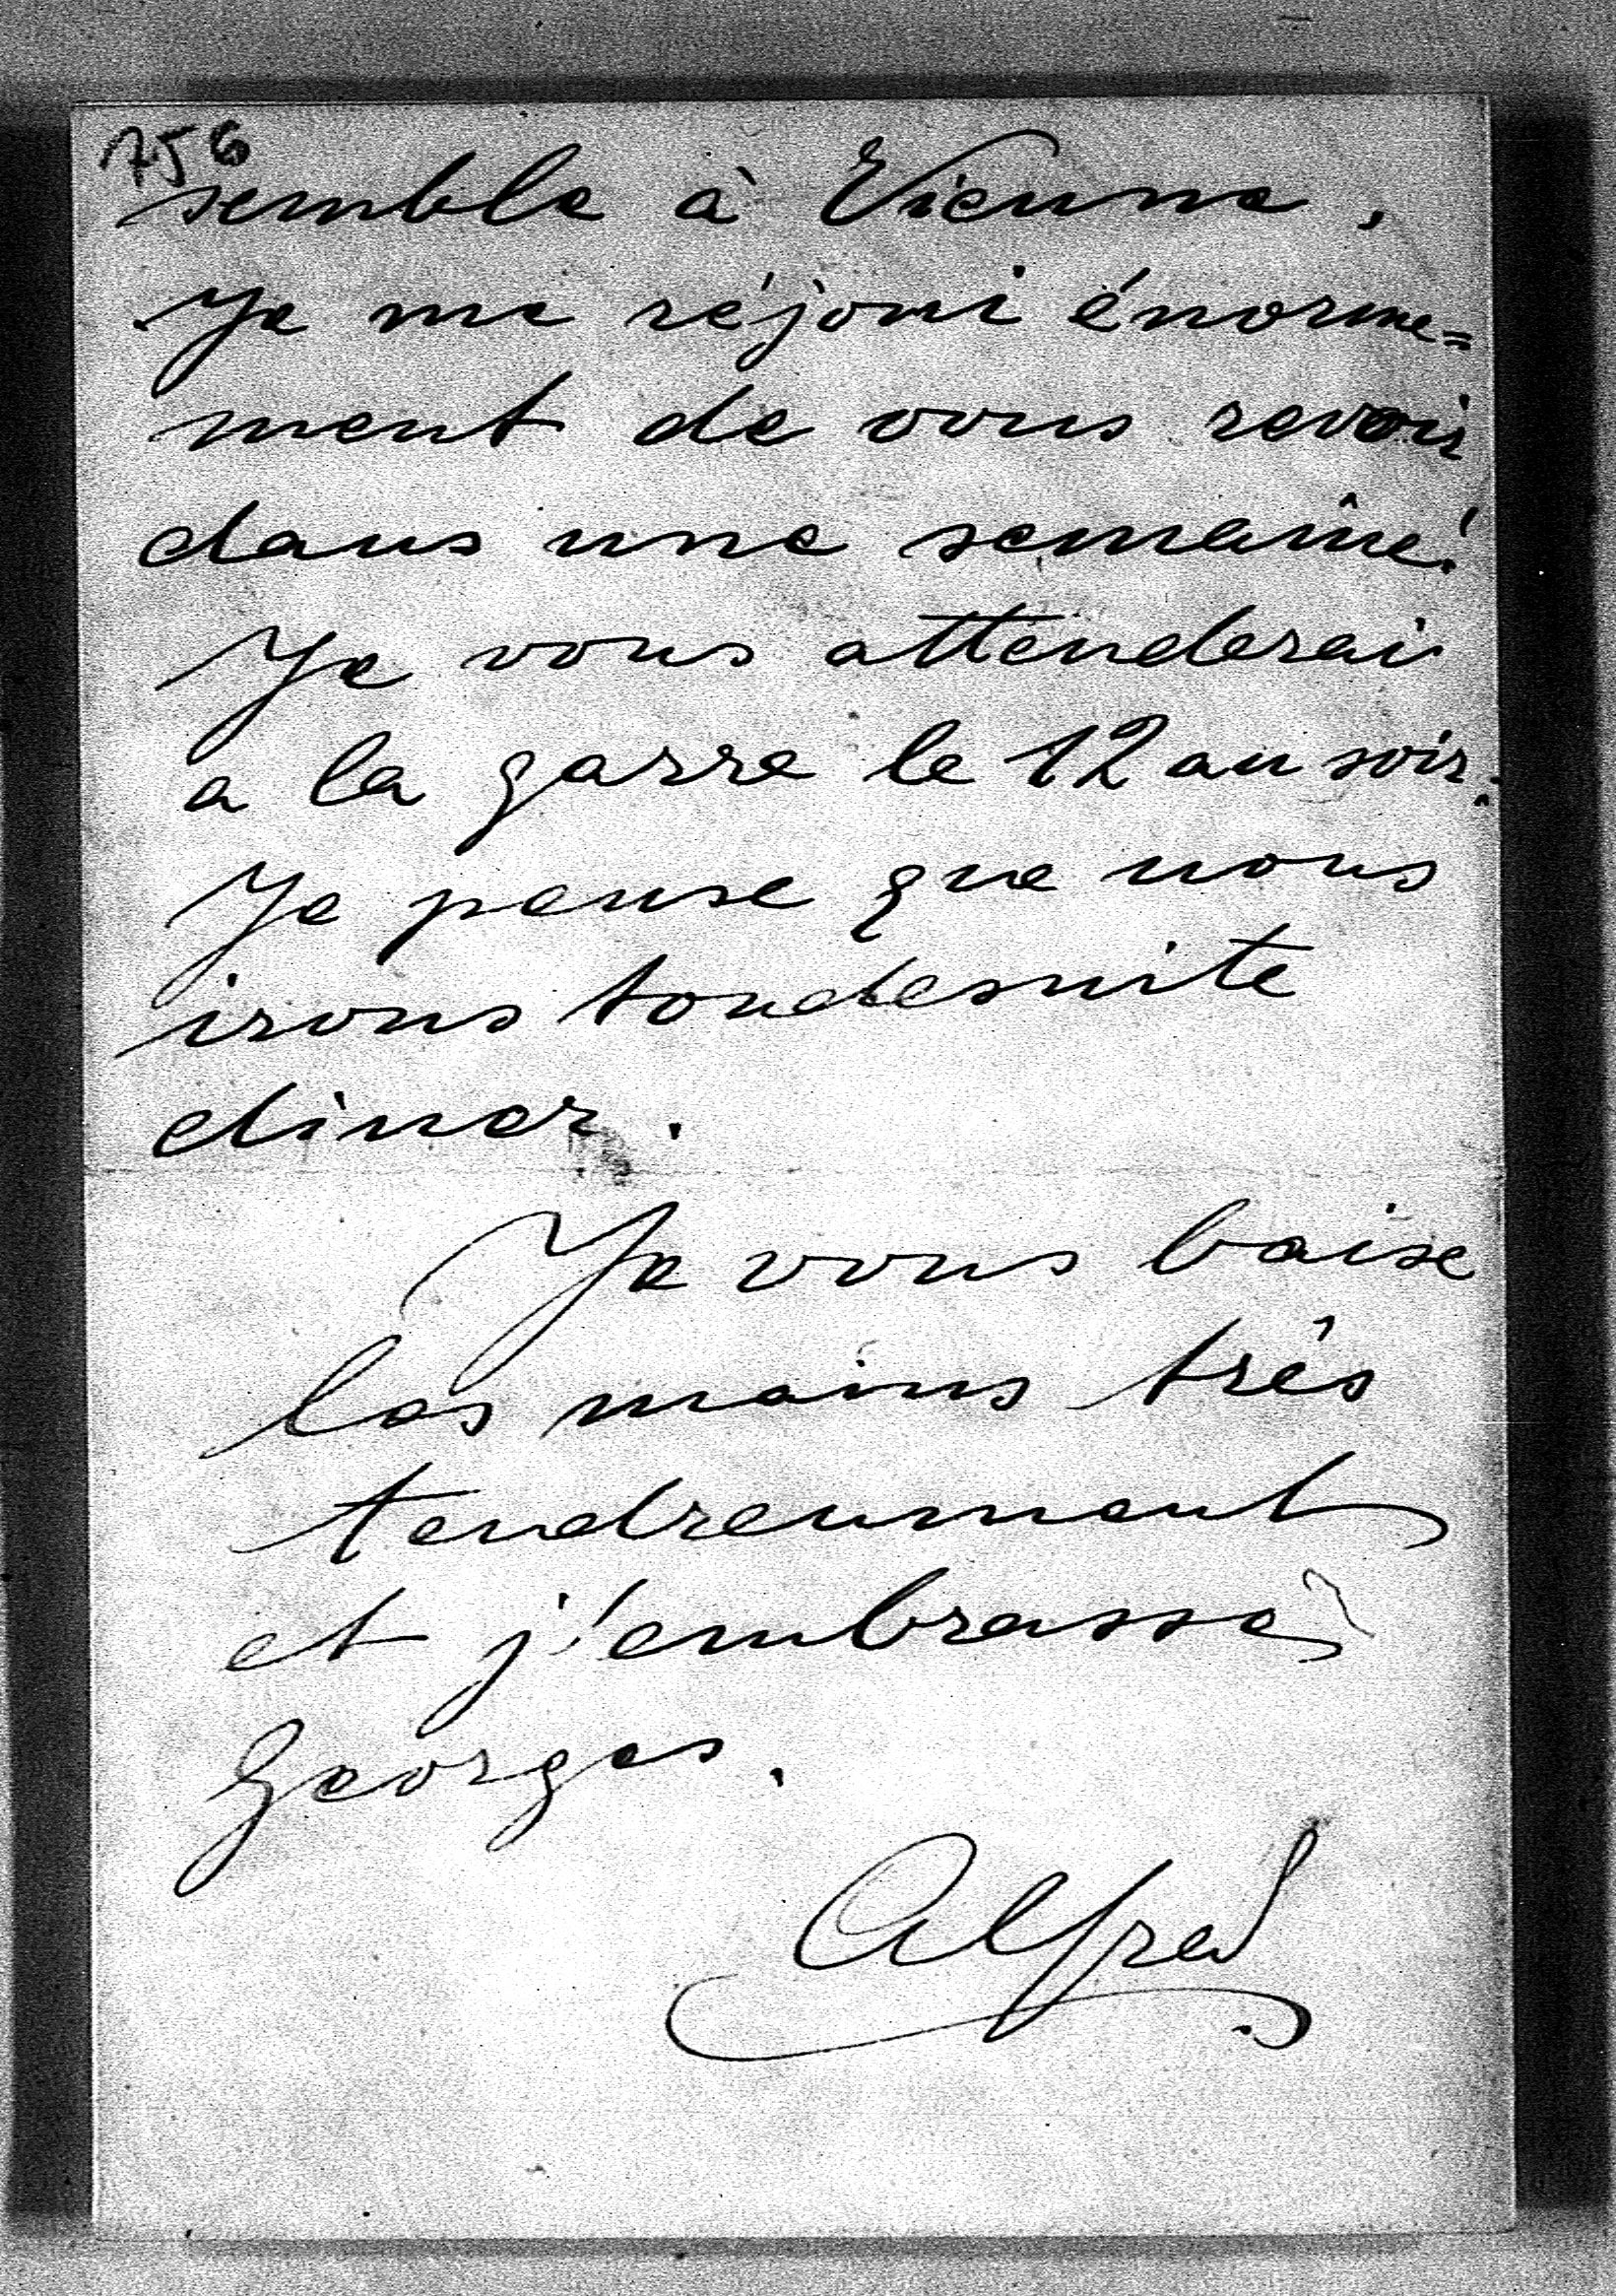 756
semble à Vienne.
Je me réjoui énorme=
ment de vous revoir
dans une semaîne!
Je vous attenderai
a la garre le 12 au soir.
Je pense que nous
irons toudesuite
diner.
Je vous baise
les mains très
tendreument
et j'embrasse
Georges.
Alfred